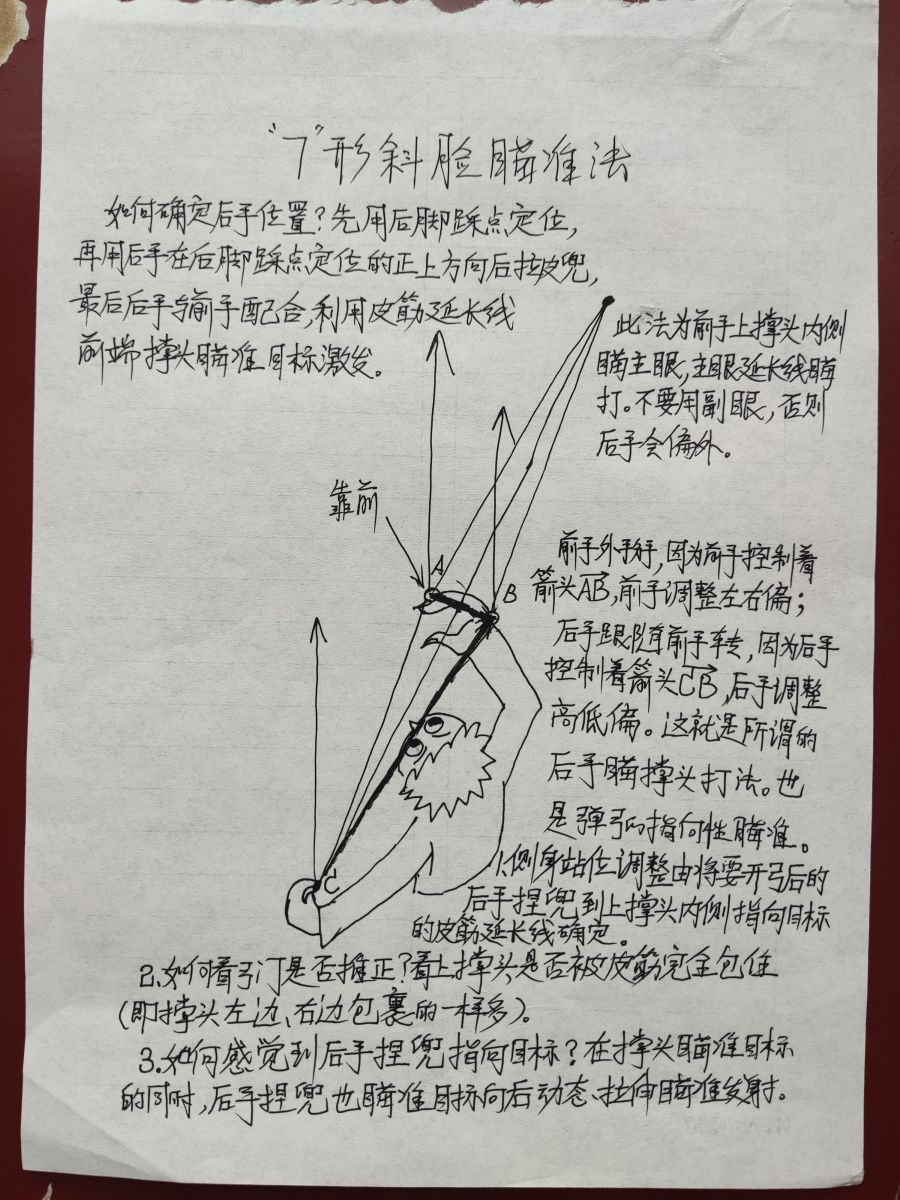 “7”形斜脸瞄准法
如何确定后手位置?先用后脚踩点定位,
再用后手在后脚踩点定位的正上方向后拉皮兜,
最后后手与前手配合,利用皮筋延长线
前端撑头瞄准目标激发。
此法为前手上撑头内侧
瞄主眼,主眼延长线瞄
打。不要用副眼,否则
后手会偏外。
靠前
A
B
C
前手外掰,因为前手控制着
箭头AB,前手调整左右偏;
后手跟随前手转,因为后手
控制着箭头CB,后手调整
高低偏。这就是所谓的
后手瞄撑头打法。也
是弹弓的指向性瞄准。
1.侧身站位调整由将要开弓后的
后手捏兜到上撑头内侧指向目标
的皮筋延长线确定。
2.如何看弓门是否推正?看上撑头是否被皮筋完全包住
(即撑头左边、右边包裹的一样多)。
3.如何感觉到后手捏兜指向目标?在撑头瞄准目标
的同时,后手捏兜也瞄准目标向后动态、拉伸瞄准发射。